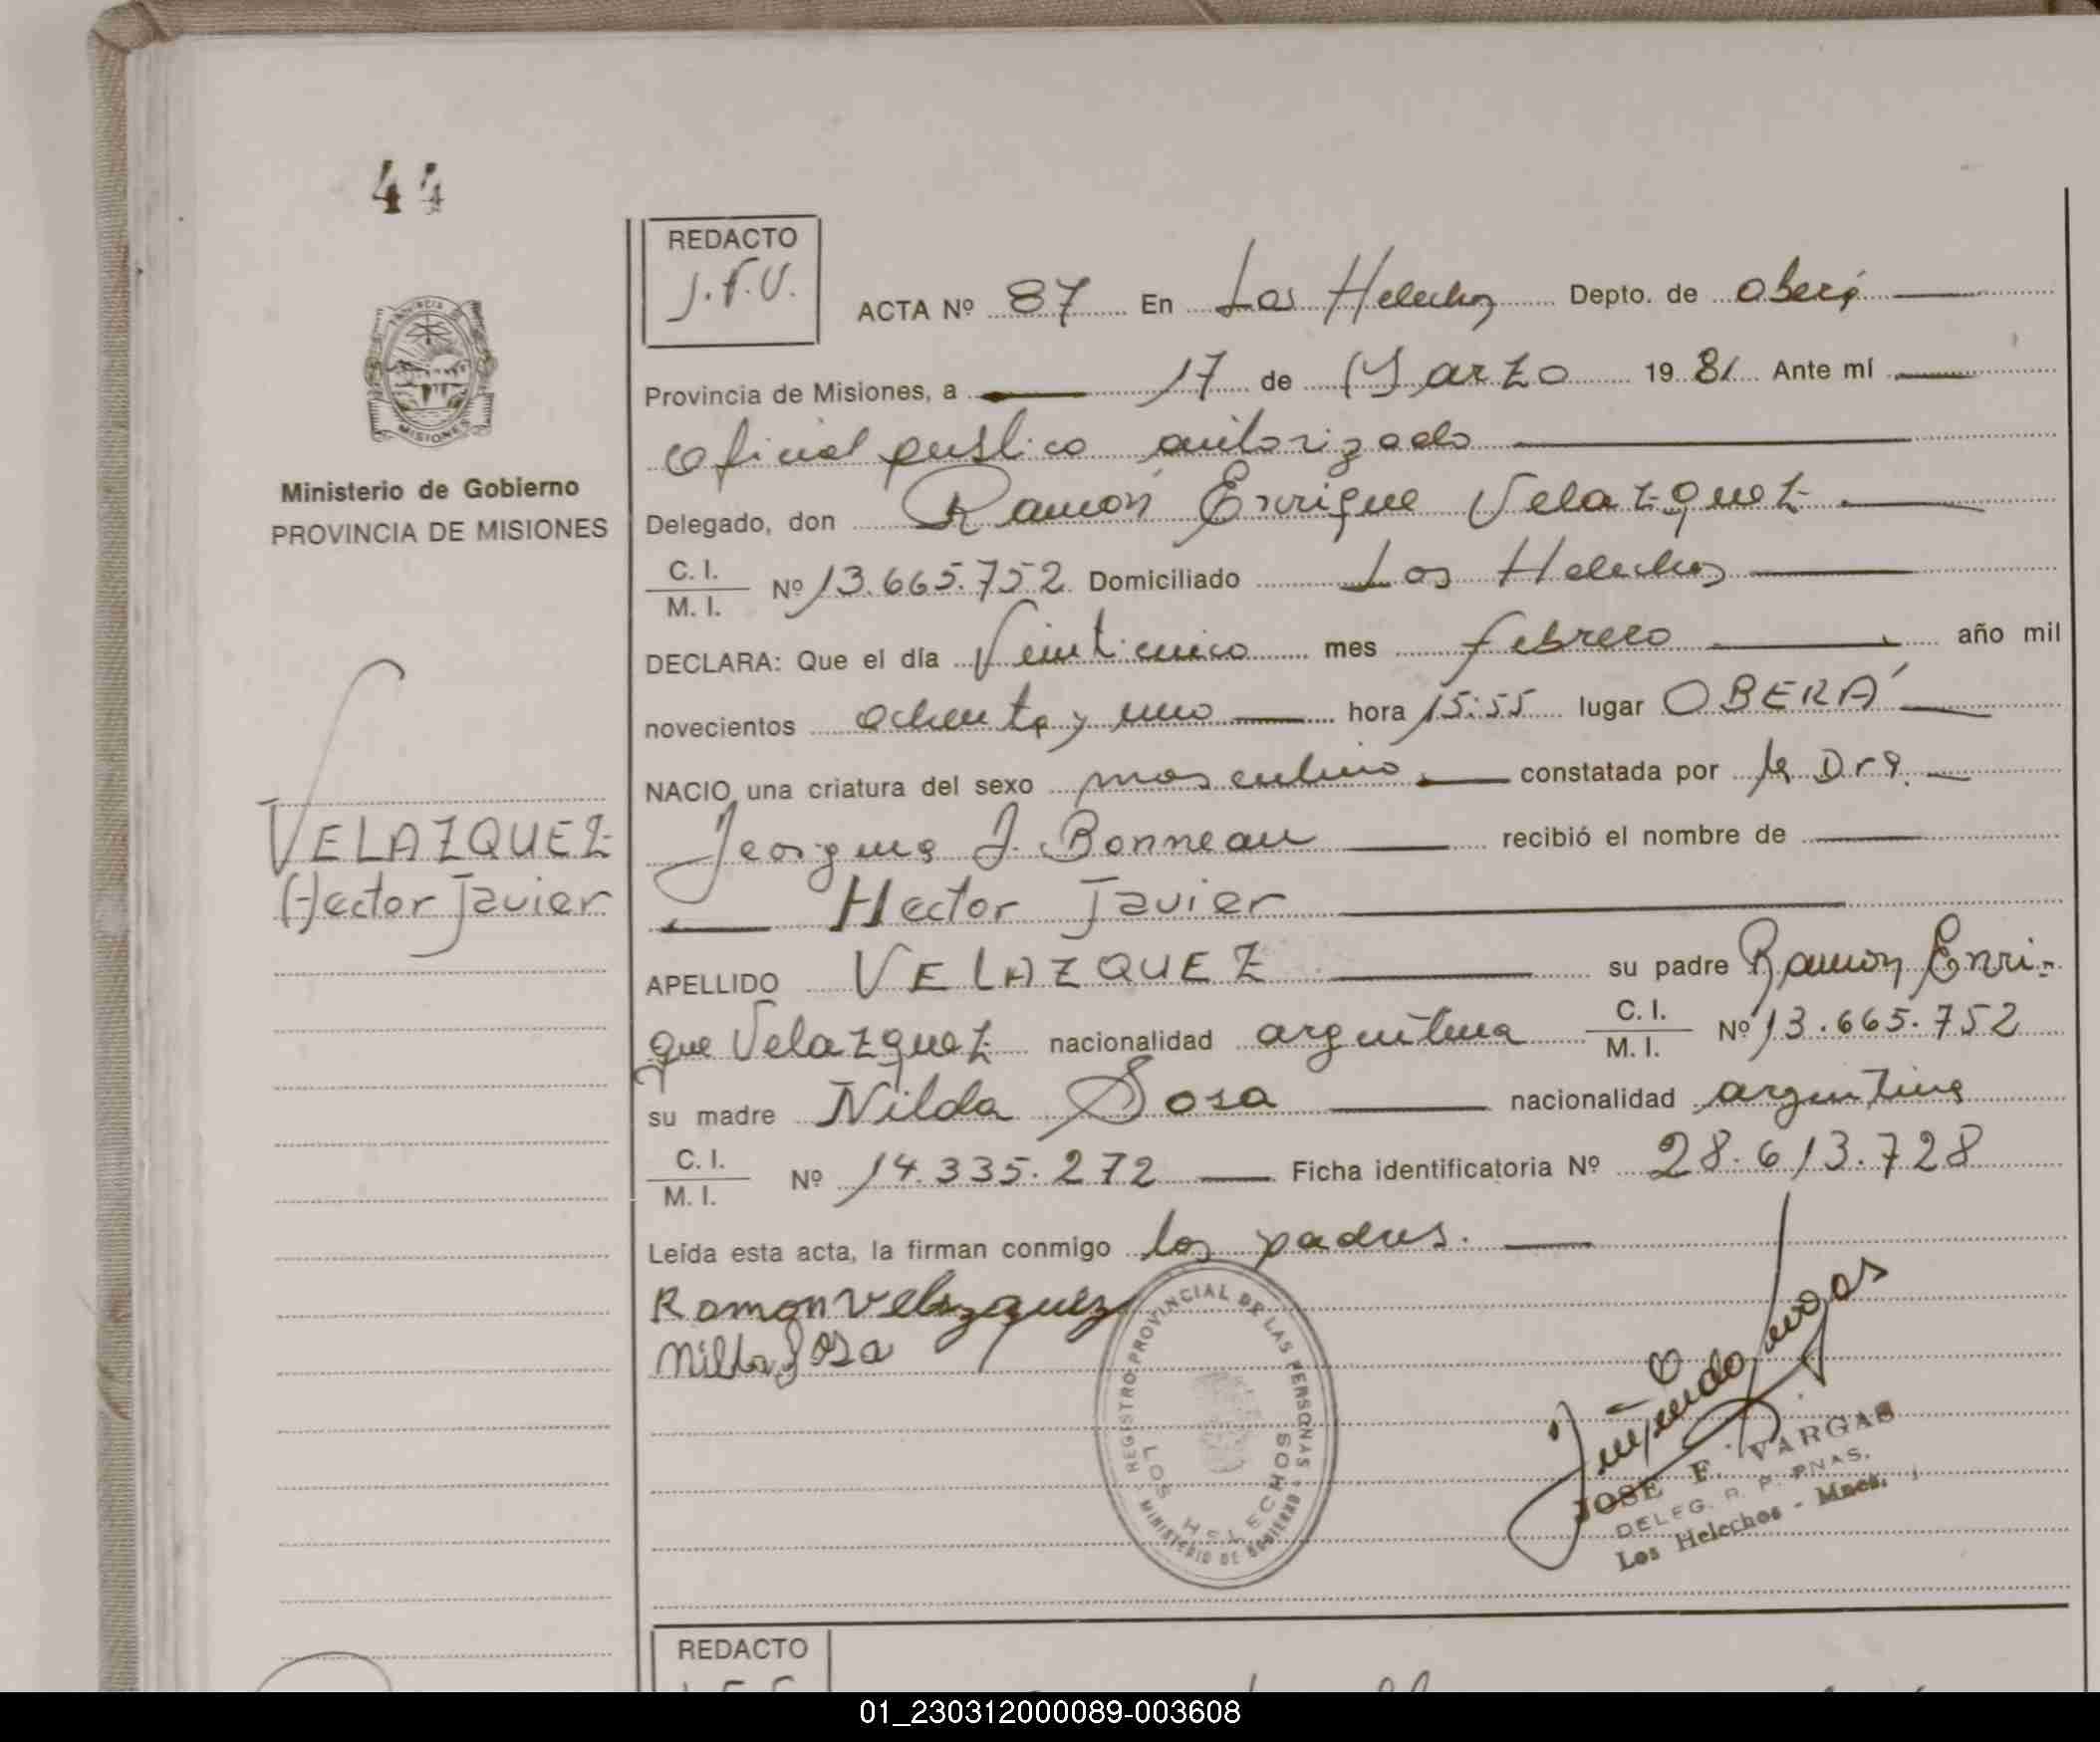 44
REDACTO
J.F.V.
ACTA Nº 87 En Los Helechos Depto. de Oberá
Provincia de Misiones, a 17 de Marzo 1981 Ante mí
Oficial publico autorizado
Delegado, don Ramón Enrique Velazquez
C. I.
M. I. Nº 13.665.752 Domiciliado Los Helechos
DECLARA: Que el día Veinticinco mes febrero año mil
novecientos ochenta y uno hora 15:55 lugar OBERÁ
NACIO una criatura del sexo masculino constatada por la Dra.
Jeorgina J. Bonneau recibió el nombre de
Hector Javier
APELLIDO VELAZQUEZ su padre Ramón Enri-
que Velazquez nacionalidad argentina C. I. M. I. Nº 13.665.752
su madre Nilda Sosa nacionalidad argentina
C. I.
M. I. Nº 14.335.272 Ficha identificatoria Nº 28.613.728
Leída esta acta, la firman conmigo los padres.
Ramon Velazquez
Nilda Sosa
PROVINCIA
MISIONES
Ministerio de Gobierno
PROVINCIA DE MISIONES
VELAZQUEZ
Hector Javier
REGISTRO PROVINCIAL DE LAS PERSONAS
MINISTERIO DE GOBIERNO
LOS HELECHOS
JOSE F. VARGAS
DELEG. R. P. PNAS.
Los Helechos - Mnes.
REDACTO
01_230312000089-003608